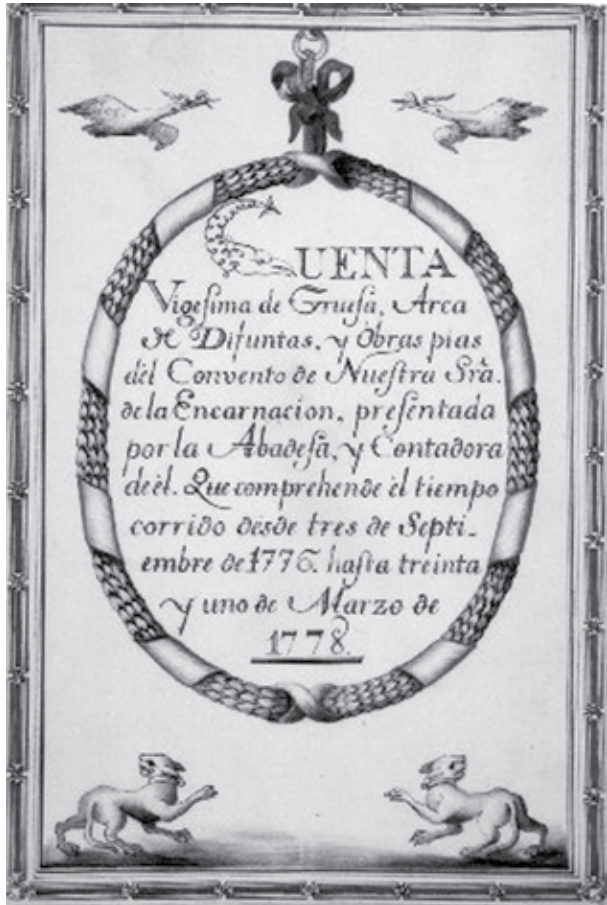 CUENTA
Vigesima de Gruesa, Arca
de Difuntas, y Obras pias
del Convento de Nuestra Srã.
de la Encarnacion, presentada
por la Abadesa, y Contadora
de èl. Que comprehende èl tiempo
corrido desde tres de Septi-
embre de 1776. hasta treinta
y uno de Marzo de
1778.